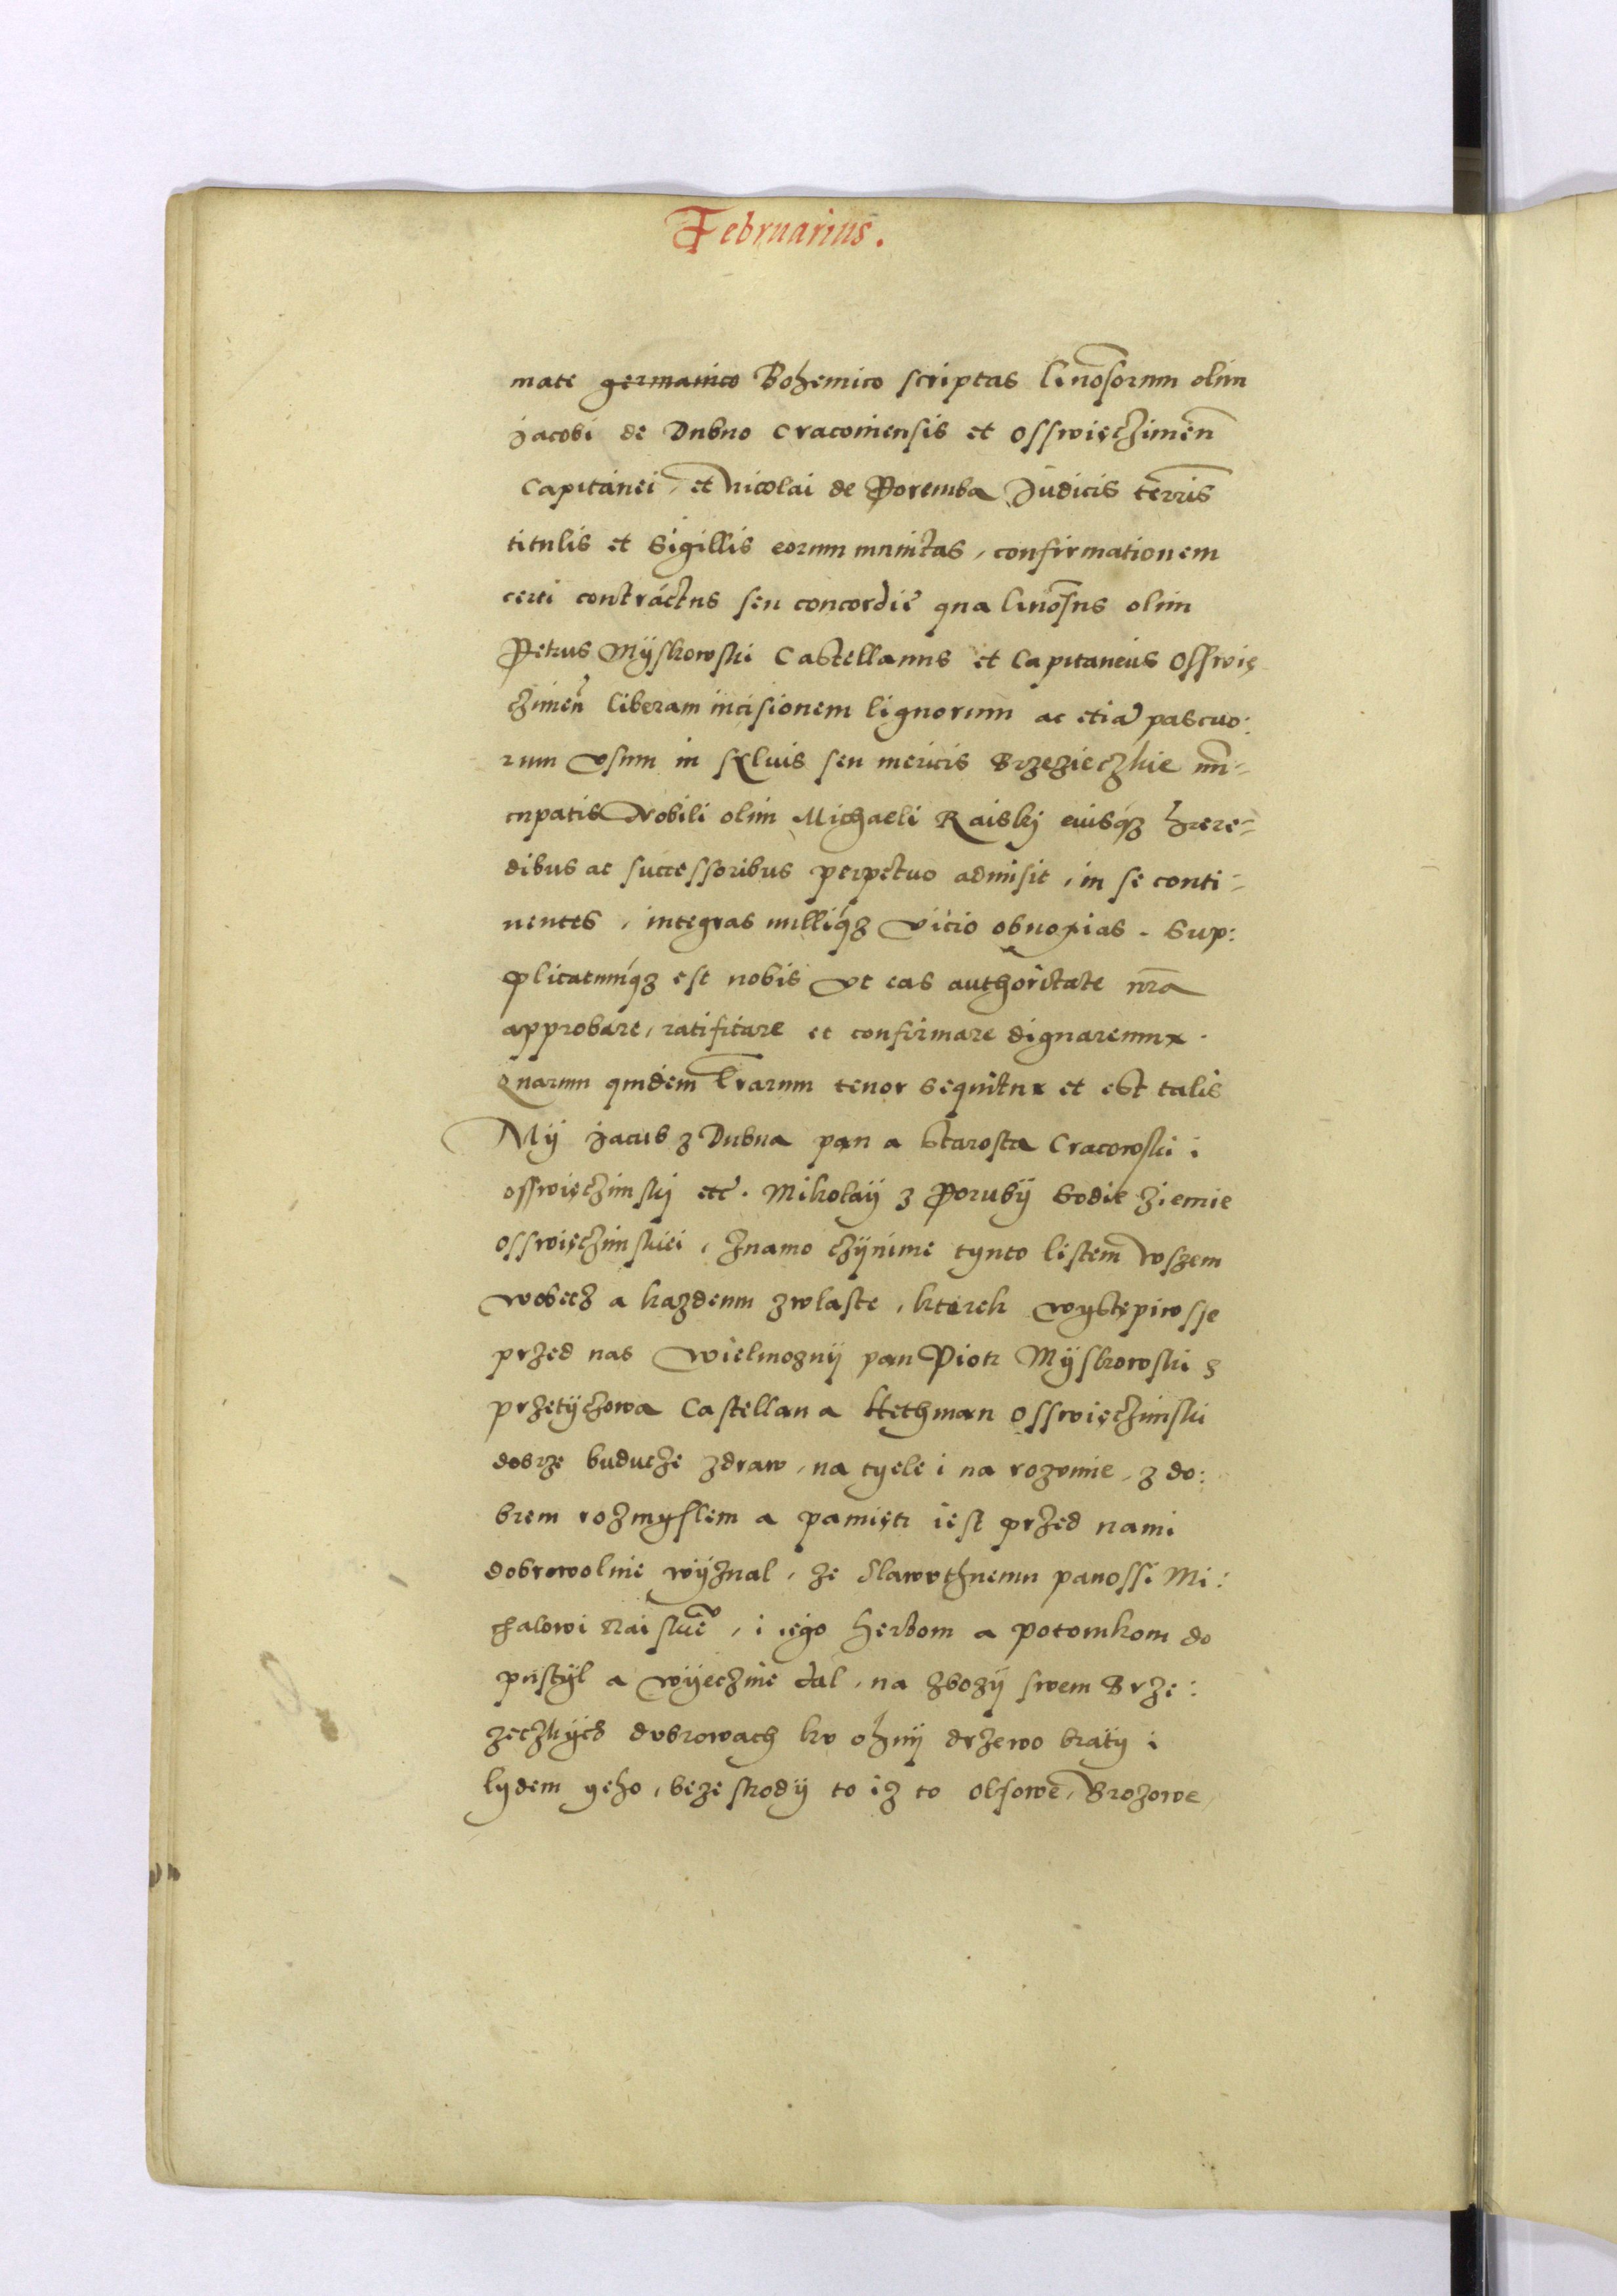 Februarius.
mate germanico Bohemico scriptas G͠nosorum olim
Jacobi de Dubno Cracoviensis et Osswięczimen̄
Capitanei, et Nicolai de Poremba Judicis terr͠is
titulis et Sigillis eorum munitas, confirmationem
certi contráctus seu concordię qua G͠nosus olim
Petrus Mÿskowski Castellanus et Capitaneus Osswię
czimen̄ liberam incisionem lignorum ac etiā pascuo:
rum vsum in sÿluis seu mericis Brzezieczkie nun=
cupatis Nobili olim Michaeli Raiskj eiusq́ʒ hæere=
dibus ac successoribus perpetuo admisit, in se conti=
nentes, integras nulliq́ʒ vitio obnoxias. Sup:
plicatumq́ʒ est nobis vt eas authoritate nr͠a
approbare, ratificare et confirmare dignaremur.
Quarum quidem l͠rarum tenor sequitur et est talis
Mÿ Jacub z Dubna pan a Starosta Cracowski i
osswięczimskj etc̄. Mikolaÿ z Porubÿ Sodie ziemie
osswięczimskiei, znamo czÿnime tynto listem wszem
wobecz a kazdemu zwlaste, kterek występiwsse
przed nas wielmoznÿ pan Piotr Mÿskowski z
przetÿczowa Castellan a Hethman Osswięczimski
dobrze buducze zdraw, na tyele i na rozomie, z do:
brem rozmyslem a pamięti iest przed nami
dobrowolnie wÿznal, ze Slawvthnemu panossi Mi:
chalowi Raiskiē, i iego herbom a potomkom do
pustÿl a wÿecznie dal, na zbozÿ swem Brze:
zeczkÿch dvbrowach kv ohnÿ drzewo bratÿ i
lydem yeho, beze skodÿ to iz to olsowe, Brozowe,